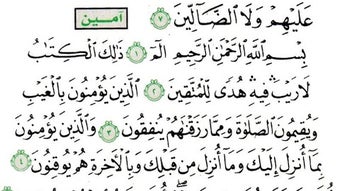 عَلَيْهِمْ وَلَا ٱلضَّآلِّينَ ٧ آمين
بِسْمِ ٱللَّهِ ٱلرَّحْمَٰنِ ٱلرَّحِيمِ الٓمٓ ١ ذَٰلِكَ ٱلْكِتَٰبُ
لَا رَيْبَ فِيهِ هُدًى لِّلْمُتَّقِينَ ٢ ٱلَّذِينَ يُؤْمِنُونَ بِٱلْغَيْبِ
وَيُقِيمُونَ ٱلصَّلَوٰةَ وَمِمَّا رَزَقْنَٰهُمْ يُنفِقُونَ ٣ وَٱلَّذِينَ يُؤْمِنُونَ
بِمَآ أُنزِلَ إِلَيْكَ وَمَآ أُنزِلَ مِن قَبْلِكَ وَبِٱلْءَاخِرَةِ هُمْ يُوقِنُونَ ٤